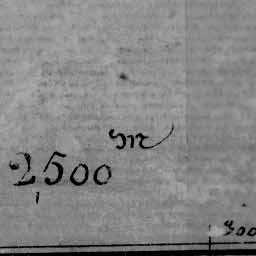 2,500 m
300